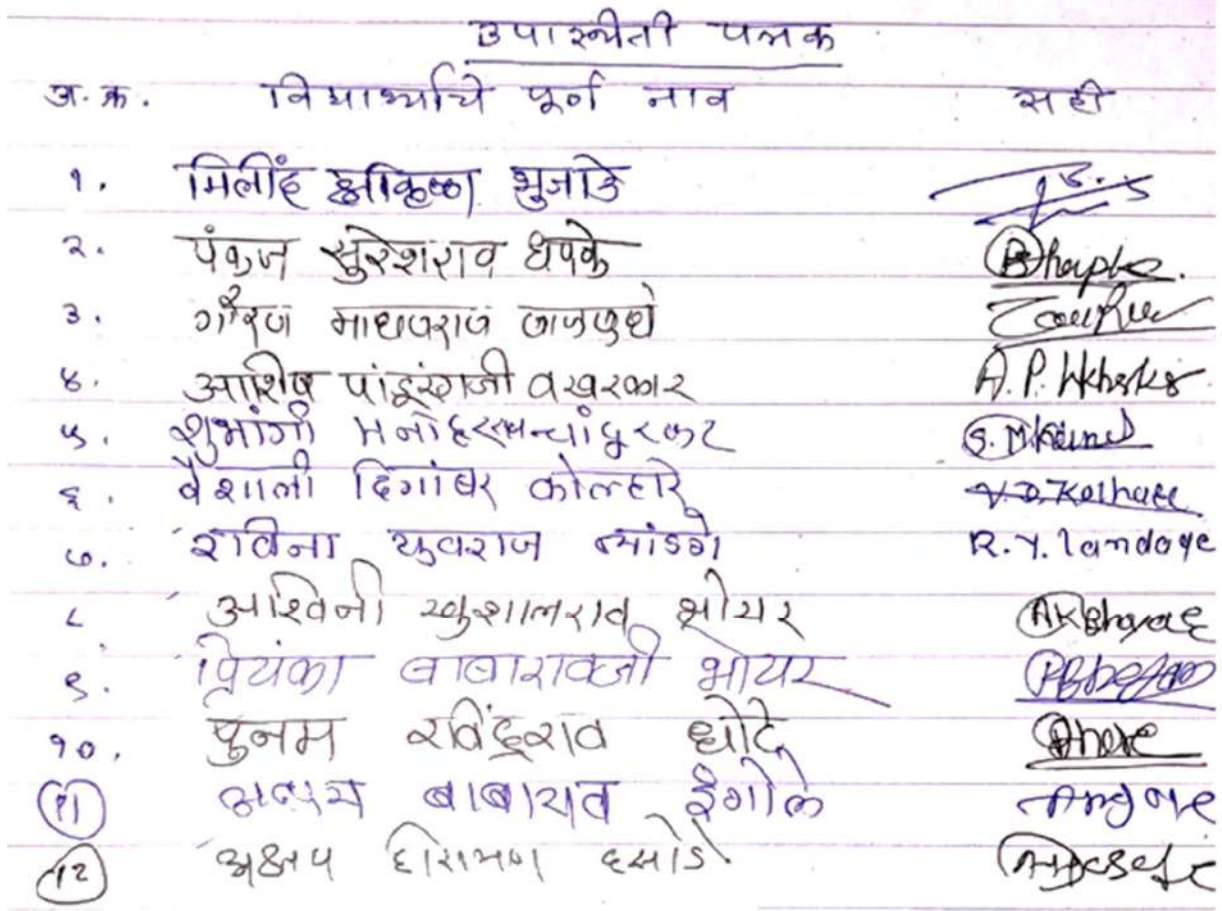 उपास्थीती पत्रक
अ. क्र. विद्यार्थ्याचे पूर्ण नाव सही
१. मिलींद श्रीकृष्ण भुजाडे
२. पंकज सुरेशराव धपके Dhapke.
३. गौरव माधवराव वाजपुधे
४. आशिष पांडूरंगजी वखरकार
५. शुभांगी मनोहरराव चांदुरकर
६. वैशाली दिगांबर कोल्हारे V. D. Kolhare
७. राविना युवराज लांडगे R. Y. Landage
८ अश्विनी खुशालराव भोयर AKBhoyar
९. प्रियंका बाबारावजी भोयर
१०. पुनम रविंद्रराव धोटे Dhote
११ बाबाराव इंगोले
१२ अक्षय हिरामण दसोडे